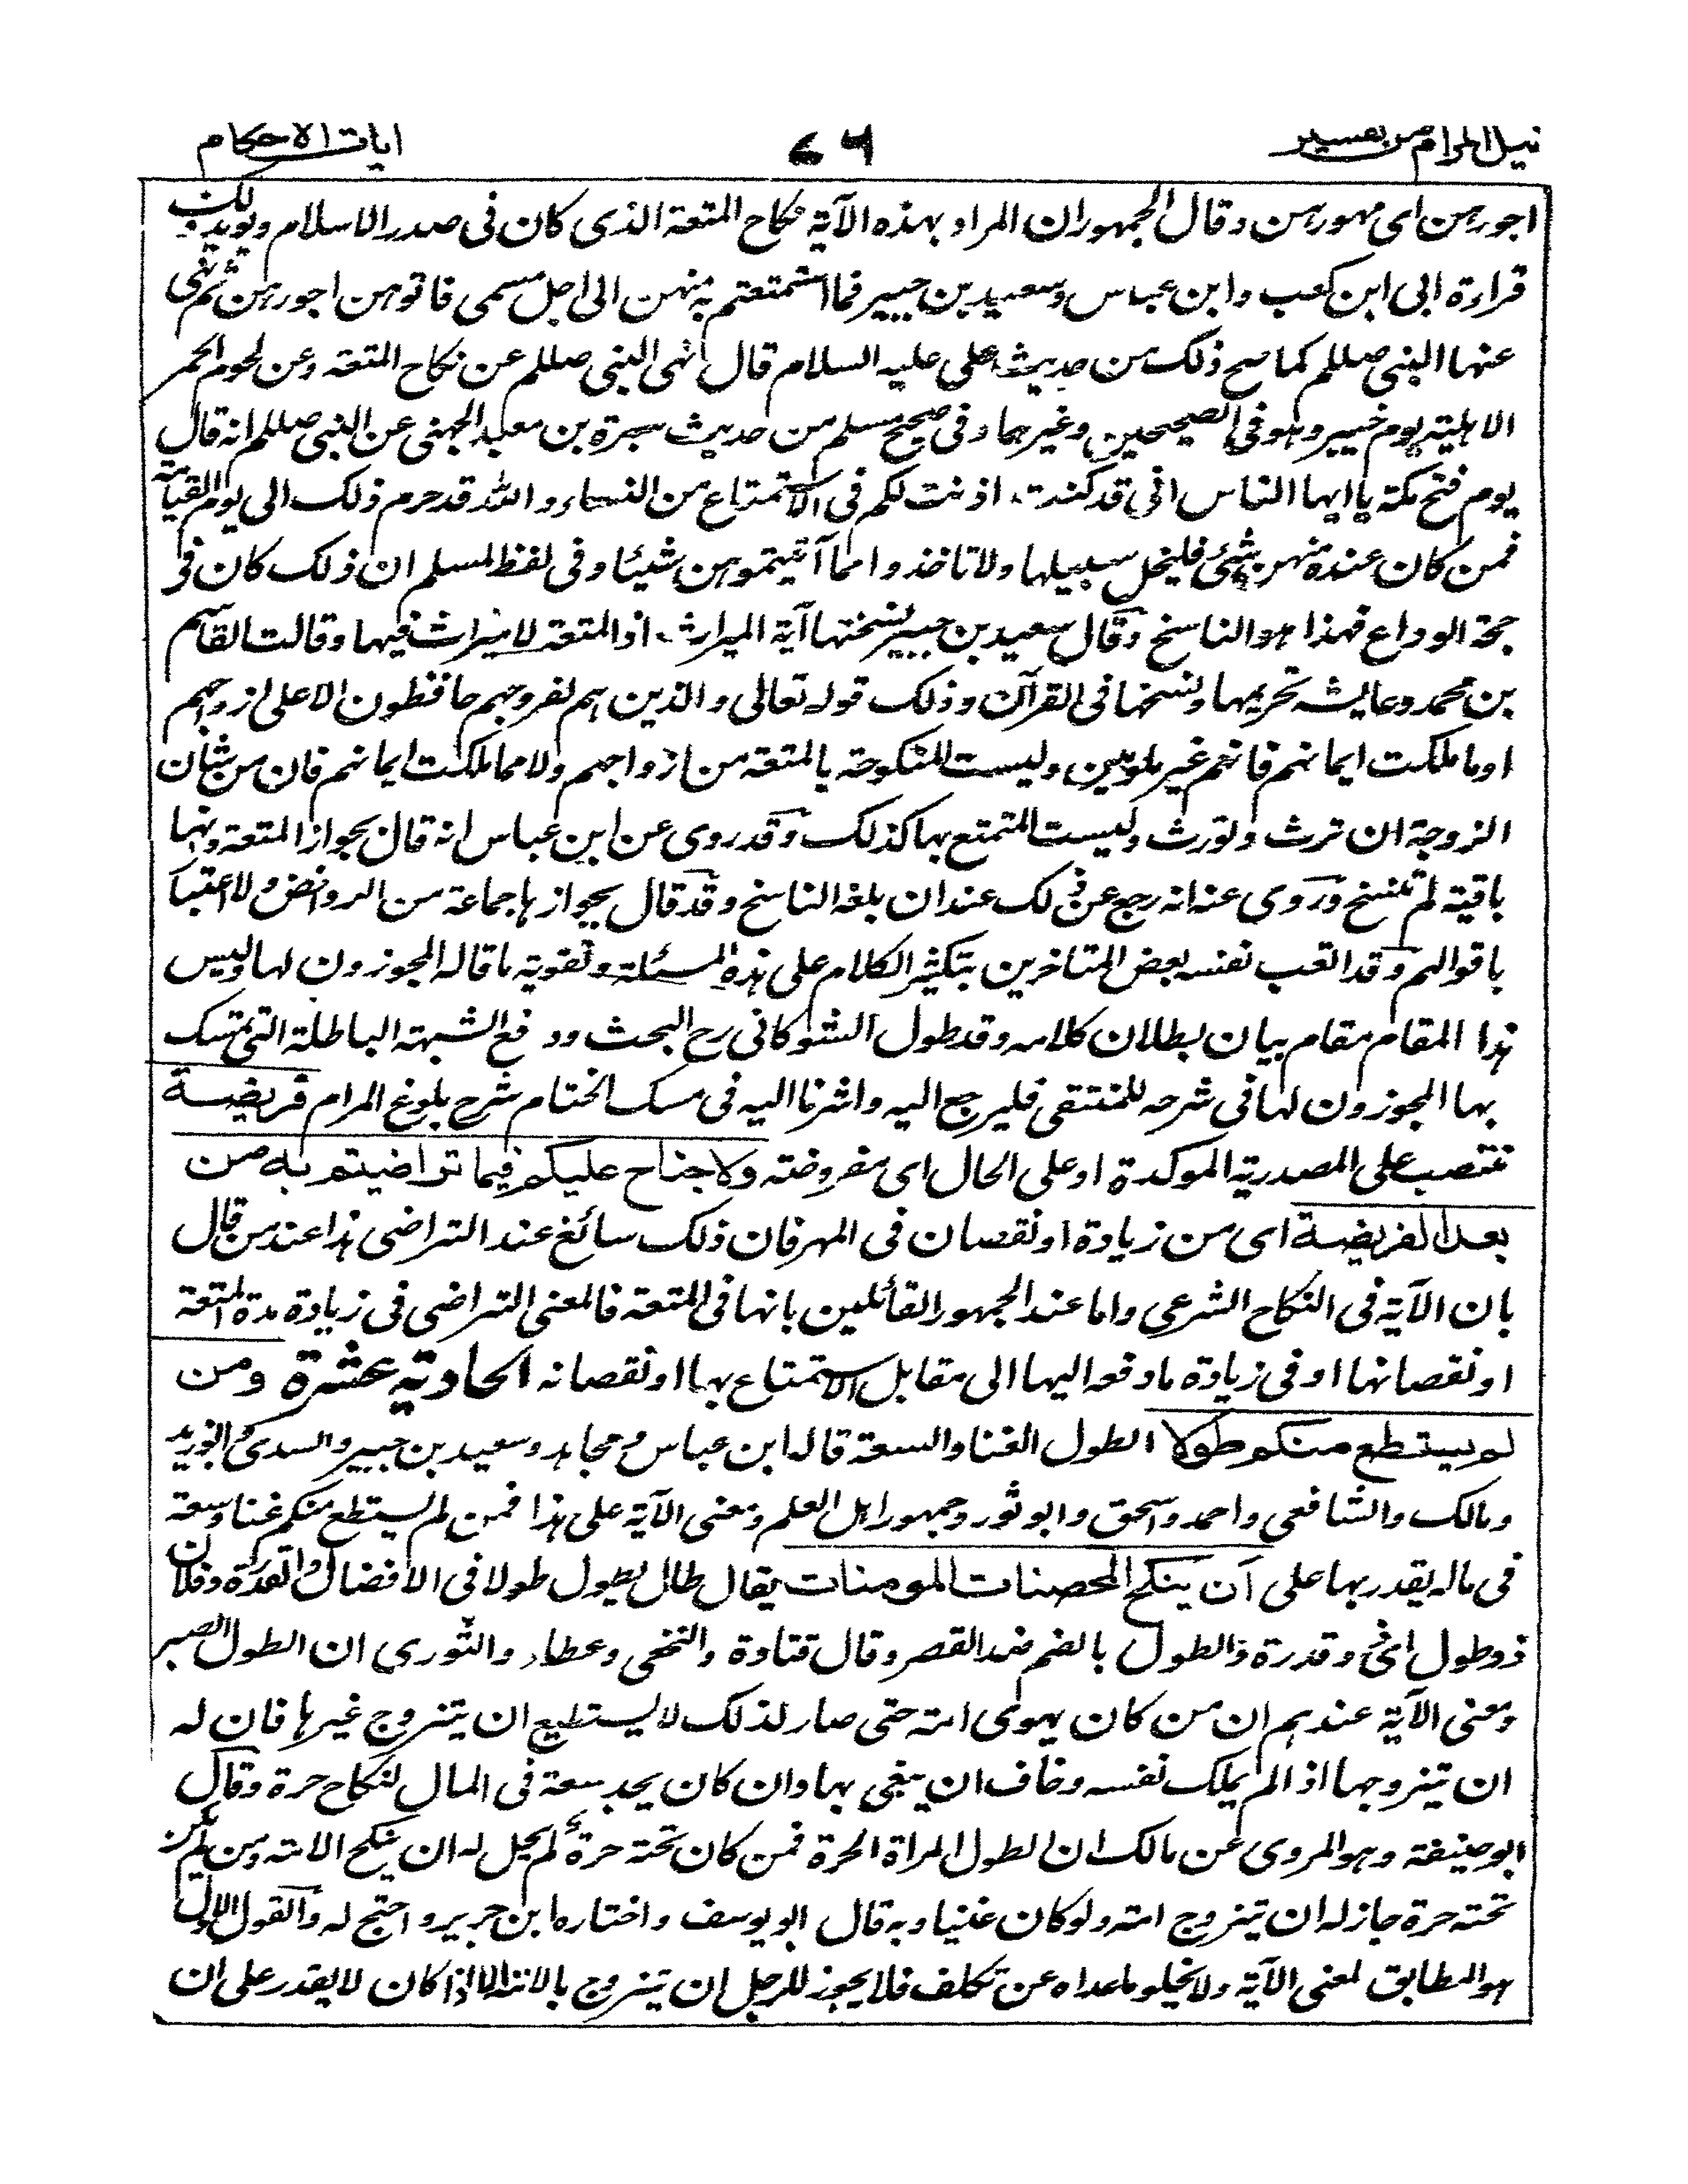 نيل المرام من تفسير ٧٦ ايات الاحكام
اجورهن اى مهورهن وقال الجمهور ان المراد بهذه الآية نكاح المتعة الذى كان فى صدر الاسلام ويؤيد ذلك
قراءة ابى ابن كعب وابن عباس وسعيد بن جبير فما استمتعتم به منهن الى اجل مسمى فاتوهن اجورهن ثم نهى
عنها النبى صللم كما صح ذلك من حديث على عليه السلام قال نهى النبى صللم عن نكاح المتعة وعن لحوم الحمر
الاهلية يوم خيبر وهو فى الصحيحين وغيرهما وفى صحيح مسلم من حديث سبرة بن معبد الجهنى عن النبى صللم انه قال
يوم فتح مكة يا ايها الناس انى قد كنت اذنت لكم فى الاستمتاع من النساء والله قد حرم ذلك الى يوم القيامة
فمن كان عنده منهن شئ فليخل سبيلها ولا تاخذوا مما آتيتموهن شيئا وفى لفظ لمسلم ان ذلك كان فى
حجة الوداع فهذا هو الناسخ وقال سعيد بن جبير نسختها آية الميراث اذ المتعة لا ميراث فيها وقالت القاسم
بن محمد وعايشه تحريمها ونسخها فى القرآن وذلك قوله تعالى والذين هم لفروجهم حافظون الا على ازواجهم
او ما ملكت ايمانهم فانهم غير ملومين وليست المنكوحة بالمتعة من ازواجهم ولا مما ملكت ايمانهم فان من شان
الزوجة ان ترث وتورث وليست المتمتع بها كذلك وقد روى عن ابن عباس انه قال بجواز المتعة وانها
باقية لم تنسخ وروى عنه انه رجع عن ذلك عند ان بلغه الناسخ وقد قال بجوازها جماعة من الروافض ولا اعتبار
باقوالهم وقد اتعب نفسه بعض المتاخرين بتكثير الكلام على هذه المسئلة وتقوية ما قاله المجوزون لها وليس
هذا المقام مقام بيان بطلان كلامه وقد طول الشوكانى رح البحث ودفع الشبهة الباطلة التى تمسك
بها المجوزون لها فى شرحه للمنتقى فليرجع اليه واشرنا اليه فى مسك الختام شرح بلوغ المرام فريضة
تنتصب على المصدرية الموكدة او على الحال اى مفروضة ولا جناح عليكم فيما تراضيتم به من
بعد الفريضة اى من زيادة او نقصان فى المهر فان ذلك سائغ عند التراضى هذا عند من قال
بان الآية فى النكاح الشرعى واما عند الجمهور القائلين بانها فى المتعة فالمعنى التراضى فى زيادة مدة المتعة
او نقصانها او فى زيادة ما دفعه اليها الى مقابل الاستمتاع بها او نقصانه الحادية عشرة ومن
لم يستطع منكم طولا الطول الغنا والسعة قاله ابن عباس ومجاهد وسعيد بن جبير والسدى وابو زيد
ومالك والشافعى واحمد واسحق وابو ثور وجمهور اهل العلم ومعنى الآية على هذا فمن لم يستطع منكم غنا وسعة
فى ماله يقدر بها على ان ينكح المحصنات المومنات يقال طال يطول طولا فى الافضال والقدرة وفلان
ذو طول اى ذو قدرة والطول بالضم ضد القصر وقال قتادة والنخعى وعطاء والثورى ان الطول الصبر
ومعنى الآية عندهم ان من كان يهوى امة حتى صار لذلك لا يستطيع ان يتزوج غيرها فان له
ان يتزوجها اذا لم يملك نفسه وخاف ان يبغى بها وان كان يجد سعة فى المال لنكاح حرة وقال
ابو حنيفة وهو المروى عن مالك ان الطول المراة الحرة فمن كان تحته حرة لم يحل له ان ينكح الامة ومن لم يكن
تحته حرة جاز له ان يتزوج امة ولو كان غنيا وبه قال ابو يوسف واختاره ابن جرير واحتج له والقول الاول
هو المطابق لمعنى الآية ولا يخلو ما عداه عن تكلف فلا يجوز للرجل ان يتزوج بالامة الا اذا كان لا يقدر على ان